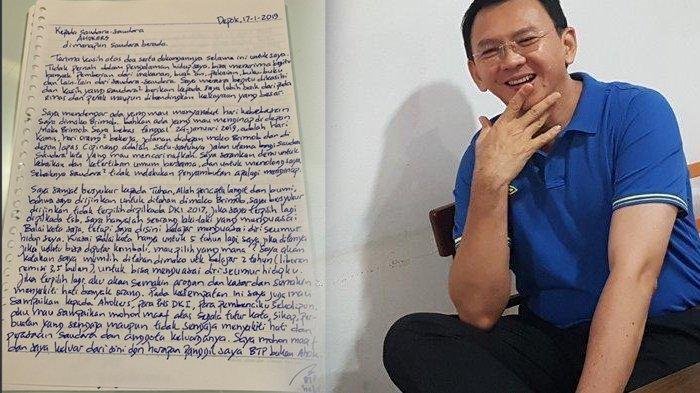 Depok, 17-1-2019
Kepada Saudara-saudara
AHOKERS
dimanapun saudara berada.
Terima kasih atas doa serta dukungannya selama ini untuk saya.
Tidak pernah dalam pengalaman hidup saya, bisa menerima begitu
banyak pemberian dari makanan, buah²an, pakaian, buku-buku
dan lain-lain dari saudara-saudara. Saya merasa begitu dikasihi
dan kasih yang saudara² berikan kepada saya lebih baik daripada
emas dan perak maupun dibandingkan kekayaan yang besar.
Saya mendengar ada yang mau menyambut hari kebebasan
saya dimako Brimob. bahkan ada yang mau menginap didepan
Mako Brimob. Saya bebas tanggal 24 januari 2019, adalah hari
Kamis, hari orang² bekerja, jalanan didepan mako Brimob dan di
depan lapas Cipinang adalah satu-satunya jalan utama bagi saudara
saudara kita yang mau mencari nafkah. Saya sarankan demi untuk
kebaikan dan ketertiban umum bersama, dan untuk menolong saya,
sebaiknya saudara² tidak melakukan penyambutan apalagi menginap.
Saya sangat bersyukur kepada Tuhan, Allah pencipta langit dan bumi,
bahwa saya diijinkan untuk ditahan dimako Brimob. Saya bersyukur
diijinkan tidak terpilih diPilkada DKI 2017. Jika saya terpilih lagi
dipilkada tsb, saya hanyalah seorang laki-laki yang menguasai
Balai kota saja, tetapi saya disini belajar menguasai diri seumur
hidup saya. Kuasai Balai kota hanya untuk 5 tahun lagi. Saya jika ditanya
jika waktu bisa diputar kembali, mau pilih yang mana? Saya akan
katakan saya memilih ditahan dimako utk belajar 2 tahun (liburan
remisi 3,5 bulan), untuk bisa menguasai diri seumur hidupku.
Jika terpilih lagi, aku akan semakin arogan dan kasar dan semakin
menyakiti hati banyak orang. Pada kesempatan ini saya juga mau
sampaikan kepada Ahokers, para PNS DKI, para pembenciku sekalipun,
aku mau sampaikan mohon maaf atas segala tutur kata, sikap, per-
buatan yang sengaja maupun tidak sengaja menyakiti hati dan
perasaan saudara dan anggota keluarganya. Saya mohon maaf
dan saya keluar dari sini dan harapan panggil saya BTP bukan Ahok.